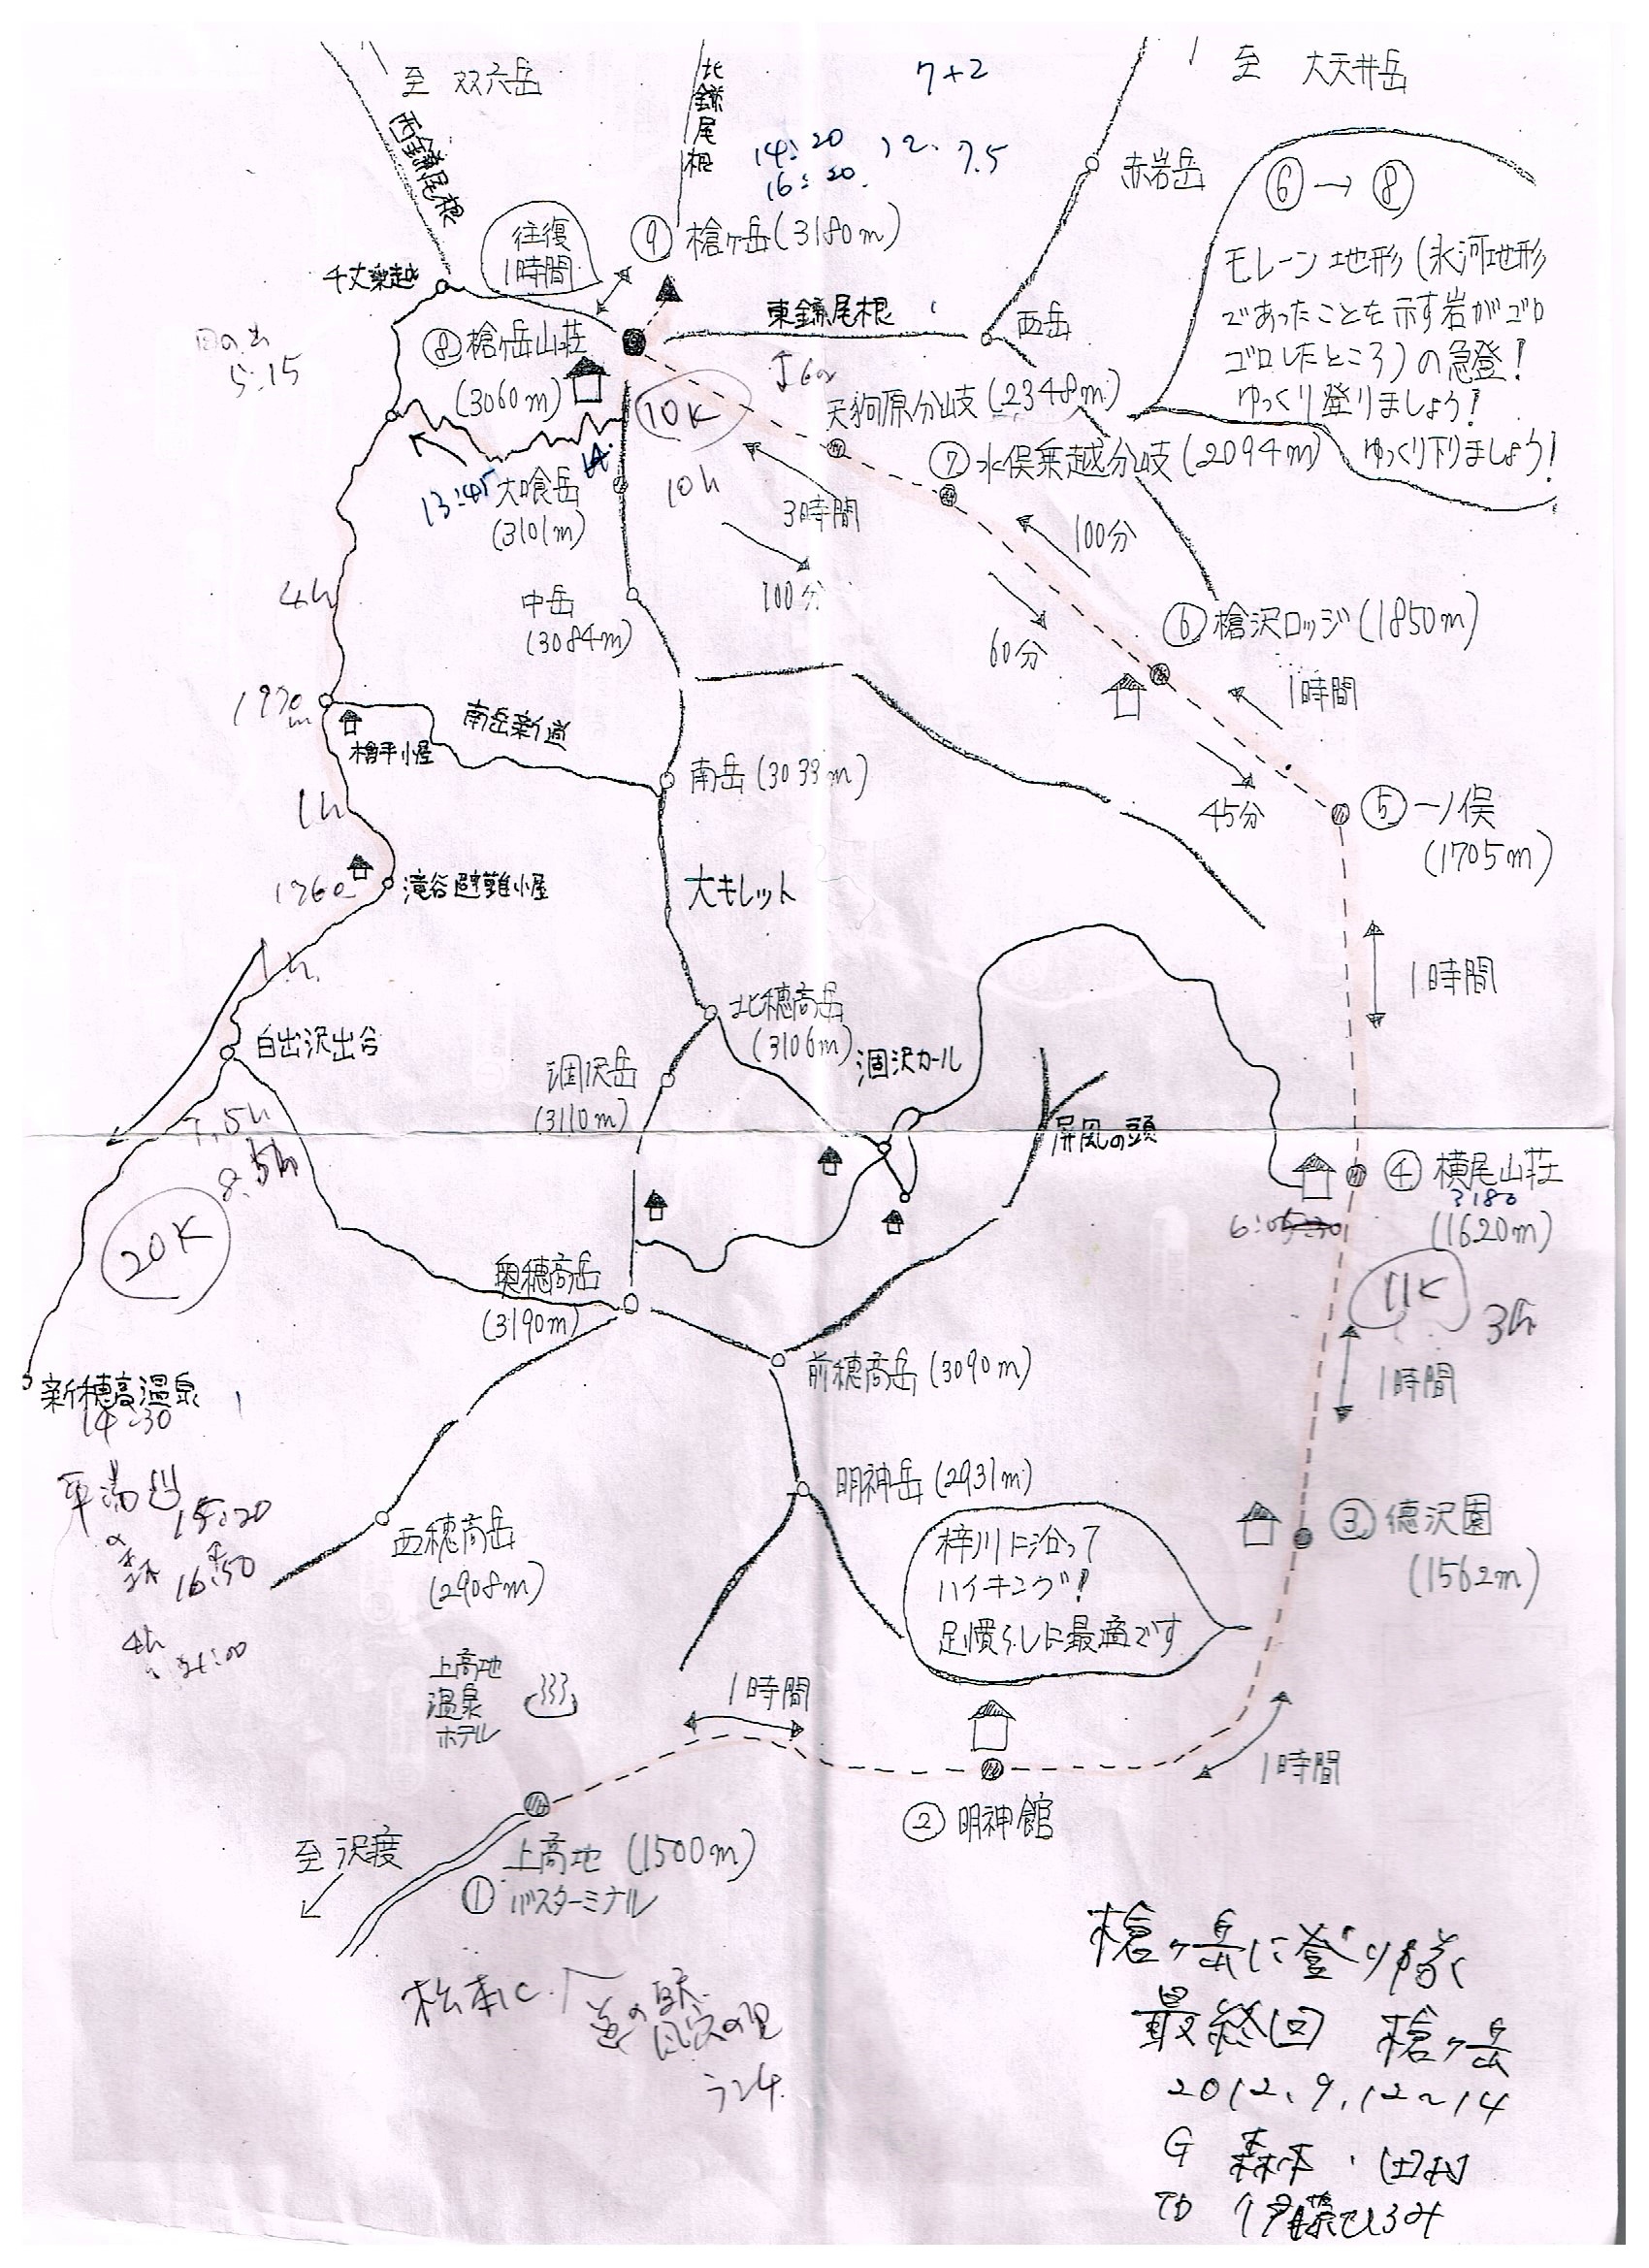 至 双六岳
西鎌尾根
北鎌尾根
7+2
14:20
12.
7.5
16:20
至 大天井岳
赤岩岳
⑥→⑧
モレーン地形(氷河地形
であったことを示す岩がゴロ
ゴロしたところ)の急登!
ゆっくり登りましょう!
ゆっくり下りましょう!
往復
1時間
⑨ 槍ヶ岳(3180m)
千丈乗越
東鎌尾根
西岳
日の出
5:15
⑧ 槍ヶ岳山荘
(3060m)
10K
天狗原分岐(2348m)
⑦ 水俣乗越分岐(2094m)
13:45
大喰岳
(3101m)
10h
3時間
100分
100分
60分
4h
中岳
(3084m)
⑥ 槍沢ロッジ(1850m)
1時間
45分
1990m
槍平小屋
南岳新道
南岳(3033m)
⑤ 一ノ俣
(1705m)
1h
1760
滝谷避難小屋
大キレット
1時間
1h.
白出沢出合
北穂高岳
(3106m)
涸沢岳
(3110m)
涸沢カール
屏風の頭
7.5h
8.5h
20K
④ 横尾山荘
3180
(1620m)
6:05
11K
3h
1時間
奥穂高岳
(3190m)
前穂高岳(3090m)
新穂高温泉
14:30
平湯
の
森
15:20
16:50
4h
21:00
西穂高岳
(2908m)
明神岳(2931m)
梓川に沿って
ハイキング!
足慣らしに最適です
③ 徳沢園
(1562m)
上高地
温泉
ホテル
1時間
1時間
② 明神館
至 沢渡
上高地(1500m)
① バスターミナル
松本IC.
道の駅
風穴の里
槍ヶ岳に登り隊
最終回 槍ヶ岳
2012.9.12~14
G 森本・田村
TD 伊藤ひろみ